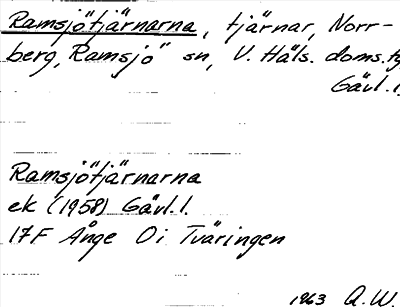 Ramsjötjärnarna, tjärnar, Norr-
berg, Ramsjö sn, V. Häls. doms.
Gävl. l.
Ramsjötjärnarna
ek (1958) Gävl. l.
17F Ånge 0i Tväringen
1963 A.W.